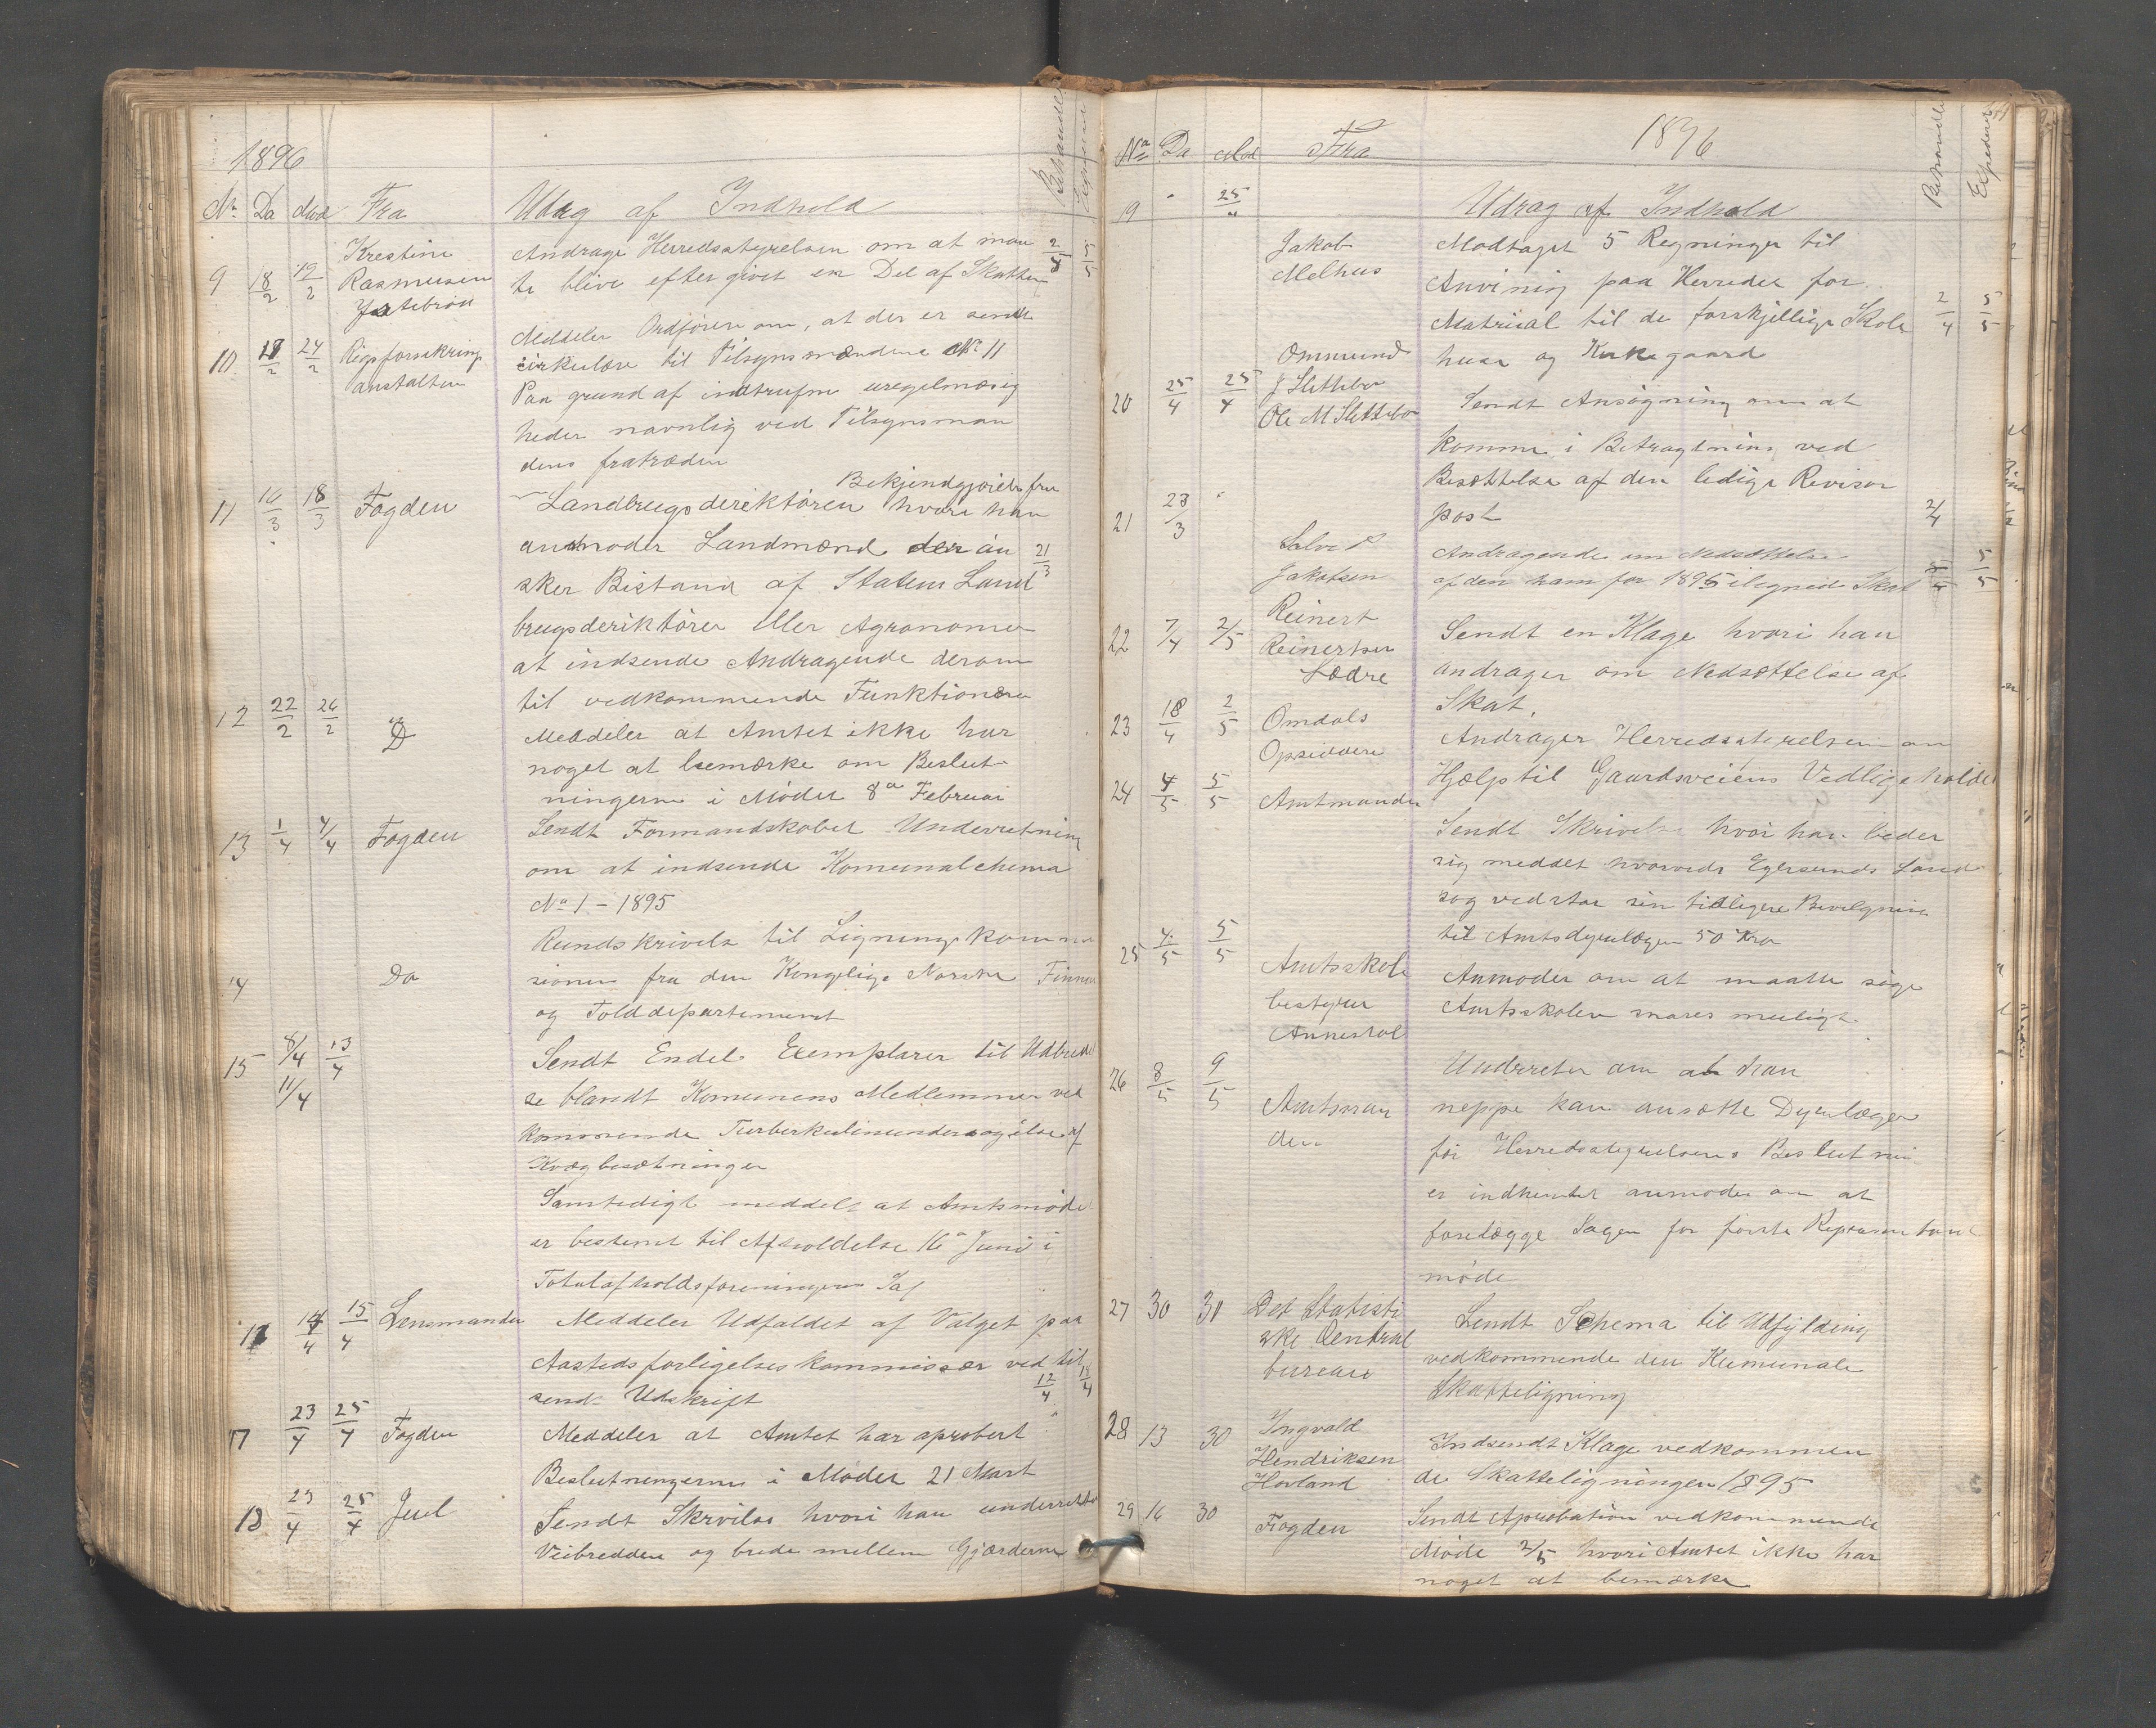 1896
Nr. Da Mod Fra Udrag af Indhold
9 18/2 19/2 Krestine Rasmusen
Andrager Herredsstyrelsen om at maa
te blive eftergivet en Del af Skatten 2/4 5/5
10 17/2 24/2 Rigsforsikrings
anstalten
Meddeler Ordføren om, at der er sendt
cirkulære til Tilsynsmændene No 11
Paa grund af indtrufne uregelmæsig
heder navnlig ved Tilsynsman
dens fratræden
11 16/3 18/3 Fogden
Bekjendgjørelse fra
Landbrugsderiktøren hvori han
anmoder Landmænd der øn 21/3
sker Bistand af Statens Land
brugsderiktører eller Agronomer
at indsende Andragende derom
til vedkommende Funktionære
12 22/2 26/2 Do
Meddeler at Amtet ikke har
noget at bemærke om Beslut
ningerne i Mødet 8de Februar
13 1/4 4/4 Fogden
Sendt Formandskabet Underretning
om at indsende Komunalchema
No 1 - 1895
14 Do
Rundskrivelse til Ligningskommi
sionen fra den Kongelige Norske Finans
og Tolddepartement
15 8/4 13/4
11/4
Sendt Endel Exemplarer til Udbredel
se blandt Komunens Medlemmer ved
kommende Tuberkulinundersøgelse af
Kvægbesætninger
Samtidigt meddelt at Amtsmøde
er bestemt til Afholdelse 16de Juni i
Totalafholdsforeningens Sal
16 14/4 15/4 Lensmanden
Meddeler Udfaldet af Valget paa
Aastedsforligelseskommissær ved til
sendt Udskrift 12/4
17 23/4 25/4 Fogden
Meddeler at Amtet har aprobert
Beslutningerne i Mødet 21 Mart
18 23/4 25/4 Juel
Sendt Skrivelse hvori han underretter
Veibredden og brede mellem Gjærderne
1896
No Da Mod Fra
Udrag af Indhold
Behandlet Expederet
19 25/4 Jakob
Melhus
Modtaget 5 Regninger til
Anvining paa Herredet for
Matriual til de forskjellige Skole 2/4 5/5
huse og Kirkegaard
20 25/4 25/4 Ommund
J Slettebø
Ole M Slettebø
Sendt Ansøgning om at
komme i Betragtning ved
Besættelse af den ledige Revisor
post 2/4
21 23/3 Salve P
Jakobsen
Andragende om Nedsættelse
af den ham for 1895 ilignede Skat 5/5
22 7/4 2/5 Reinert
Reinertsen
Sædre
Sendt en Klage hvori han
andrager om Nedsættelse af
Skat.
23 18/4 2/5 Omdals
Opsiddere
Andrager Herredsstyrelsen om
Hjælp til Gaardsveiens Vedligehold
24 4/5 5/5 Amtmanden
Sendt Skrivelse hvori han beder
sig meddelt hvorvidt Egersunds Land
sog vedstaar sin tidligere Bevilgning
til Amtsdyrlægen 50 Kro
25 4/5 5/5 Amtsskole
bestyrer
Annestad
Anmoder om at maatte søge
Amtsskolen snares muligt.
26 8/5 9/5 Amtsman
den
Underretter om at han
neppe kan ansætte Dyrlæger
før Herredsstyrelsens Beslutning
er indhentet anmoder om at
forelægge Sagen for første Repræsentant
møde
27 30 30 Det Statisti
ske Central
bureau
Sendt Schema til Udfylding
vedkommende den Kumunale
Skatteligning
28 13 30 Ingvald
Hendriksen
Hovland
Indsendt Klage vedkommen
de Skatteligningen 1895
29 16 30 Fogden
Sendt Aprobation vedkommende
Møde 2/5 hvori Amtet ikke har
noget at bemærke